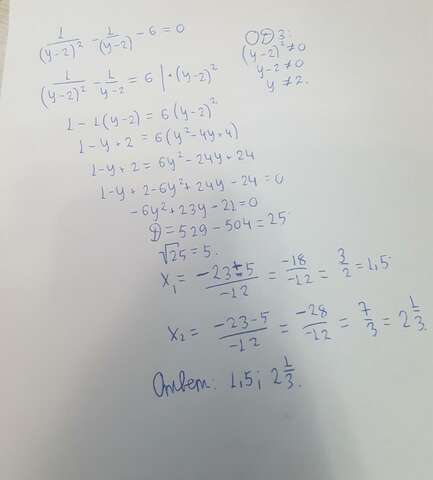 1/(y-2)² - 1/(y-2) - 6 = 0
ОДЗ:
(y-2)² ≠ 0
y-2 ≠ 0
y ≠ 2.
1/(y-2)² - 1/(y-2) = 6 | · (y-2)²
1 - 1(y-2) = 6(y-2)²
1 - y + 2 = 6(y² - 4y + 4)
1 - y + 2 = 6y² - 24y + 24
1 - y + 2 - 6y² + 24y - 24 = 0
-6y² + 23y - 21 = 0
D = 529 - 504 = 25
√25 = 5.
x₁ = (-23+5)/(-12) = (-18)/(-12) = 3/2 = 1,5
x₂ = (-23-5)/(-12) = (-28)/(-12) = 7/3 = 2 1/3.
Ответ: 1,5; 2 1/3.